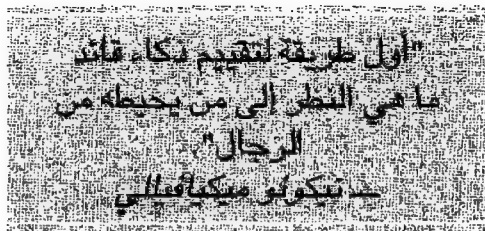 "أول طريقة لتقييم ذكاء قائد
ما هي النظر إلى من يحيطه من
الرجال".
— نيكولو ميكيافيللي